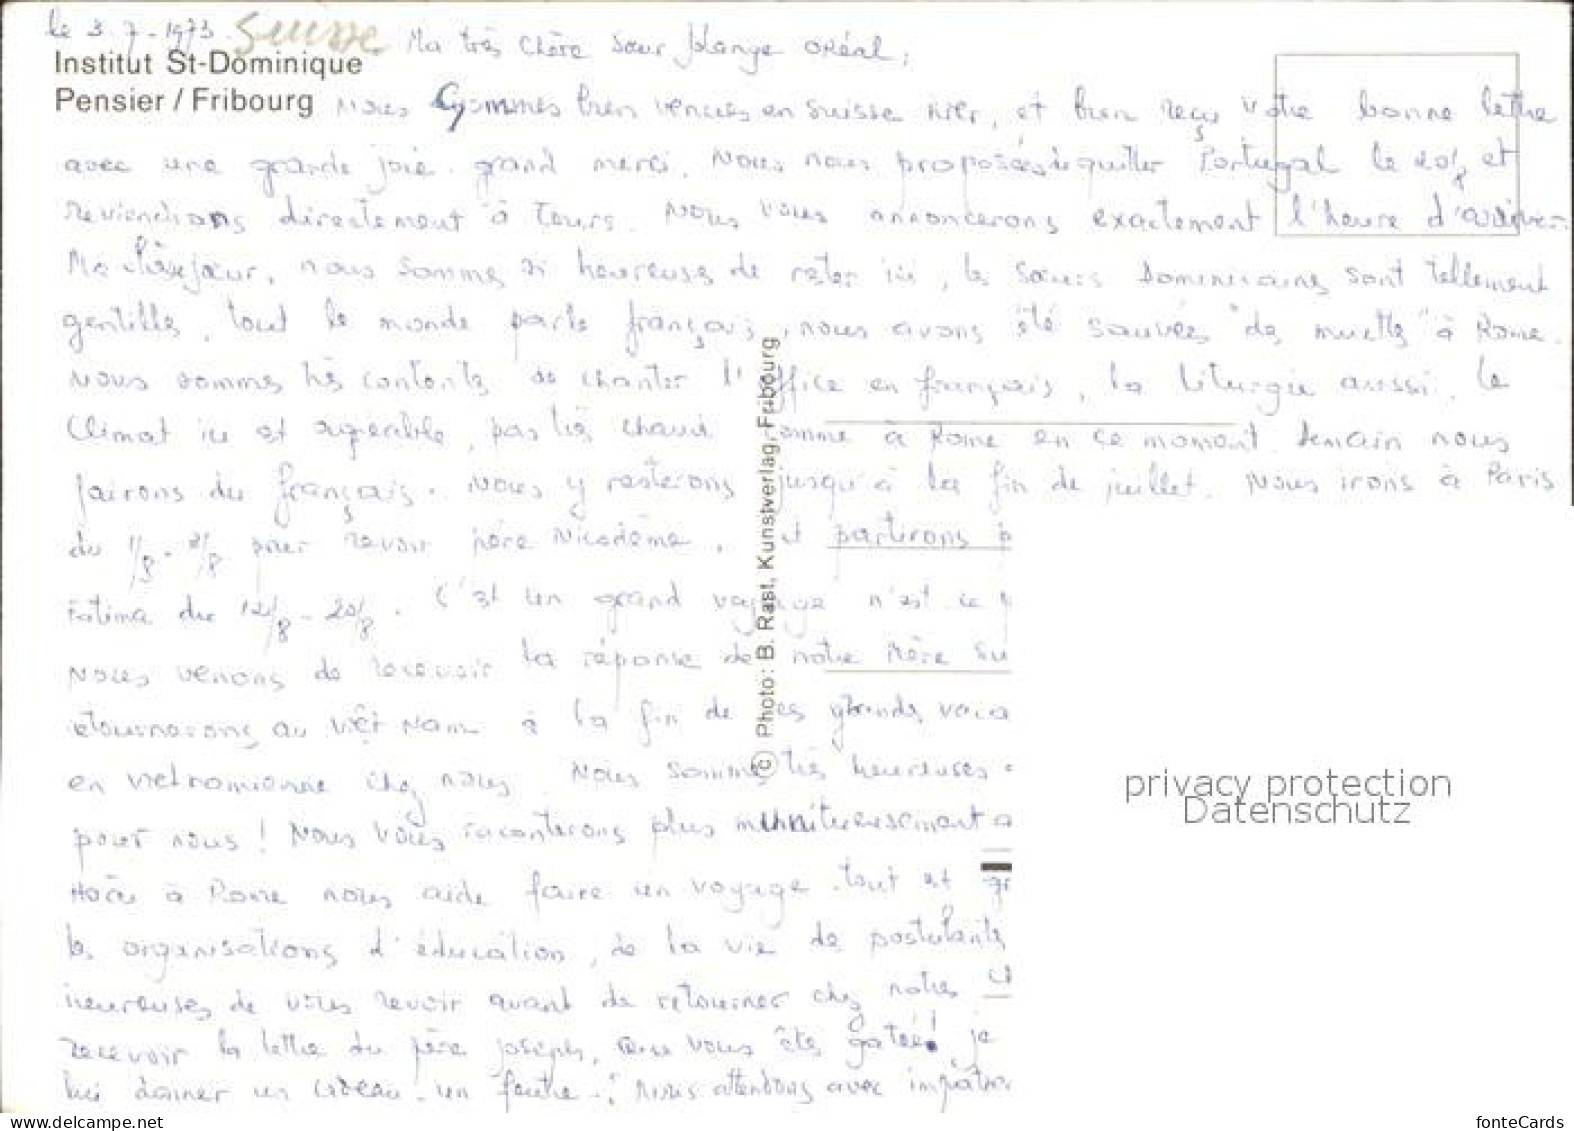 le 3-7-1973. Suisse Ma très chère Sœur
Institut St-Dominique
Pensier / Fribourg
Nous sommes bien venues en Suisse hier, et bien reçu votre bonne lettre
avec une grande joie. grand merci. Nous nous proposées de quitter Portugal le 20/8 et
reviendrons directement à Tours. Nous vous annoncerons exactement l'heure d'arrivée.
Ma chère sœur, nous somms si heureuses de rester ici, les Sœurs Dominicaines sont tellement
gentilles, tout le monde parle français, nous avons été sauvées "des muettes" à Rome.
Nous somms très contents de chanter l'office en français, la liturgie aussi. Le
climat ici est agréable, pas très chaud comme à Rome en ce moment. Demain nous
fairons du français. Nous y resterons jusqu'à la fin de juillet. Nous irons à Paris
du 1/8 - 8/8 pour revoir père Nicodème, et partirons p
Fatima du 12/8 - 20/8. C'est un grand voyage n'est ce
Nous venons de recevoir la réponse de notre Mère Su
etournerons au Việt Nam à la fin de ces grands vaca
en vietnamienne chez nous. Nous somms très heureuses
pour nous ! Nous vous raconterons plus minutieusement
à Rome nous aide faire un voyage. tout et gr
les organisations d'éducation, de la vie de postulants
heureuses de vous revoir avant de retourner chez notres
recevoir la lettre du père Joseph, que vous êtes gatée! je
lui donner un un nous attendons avec impatien
© Photo: B. Rast, Kunstverlag, Fribourg
privacy protection
Datenschutz
fonteCards